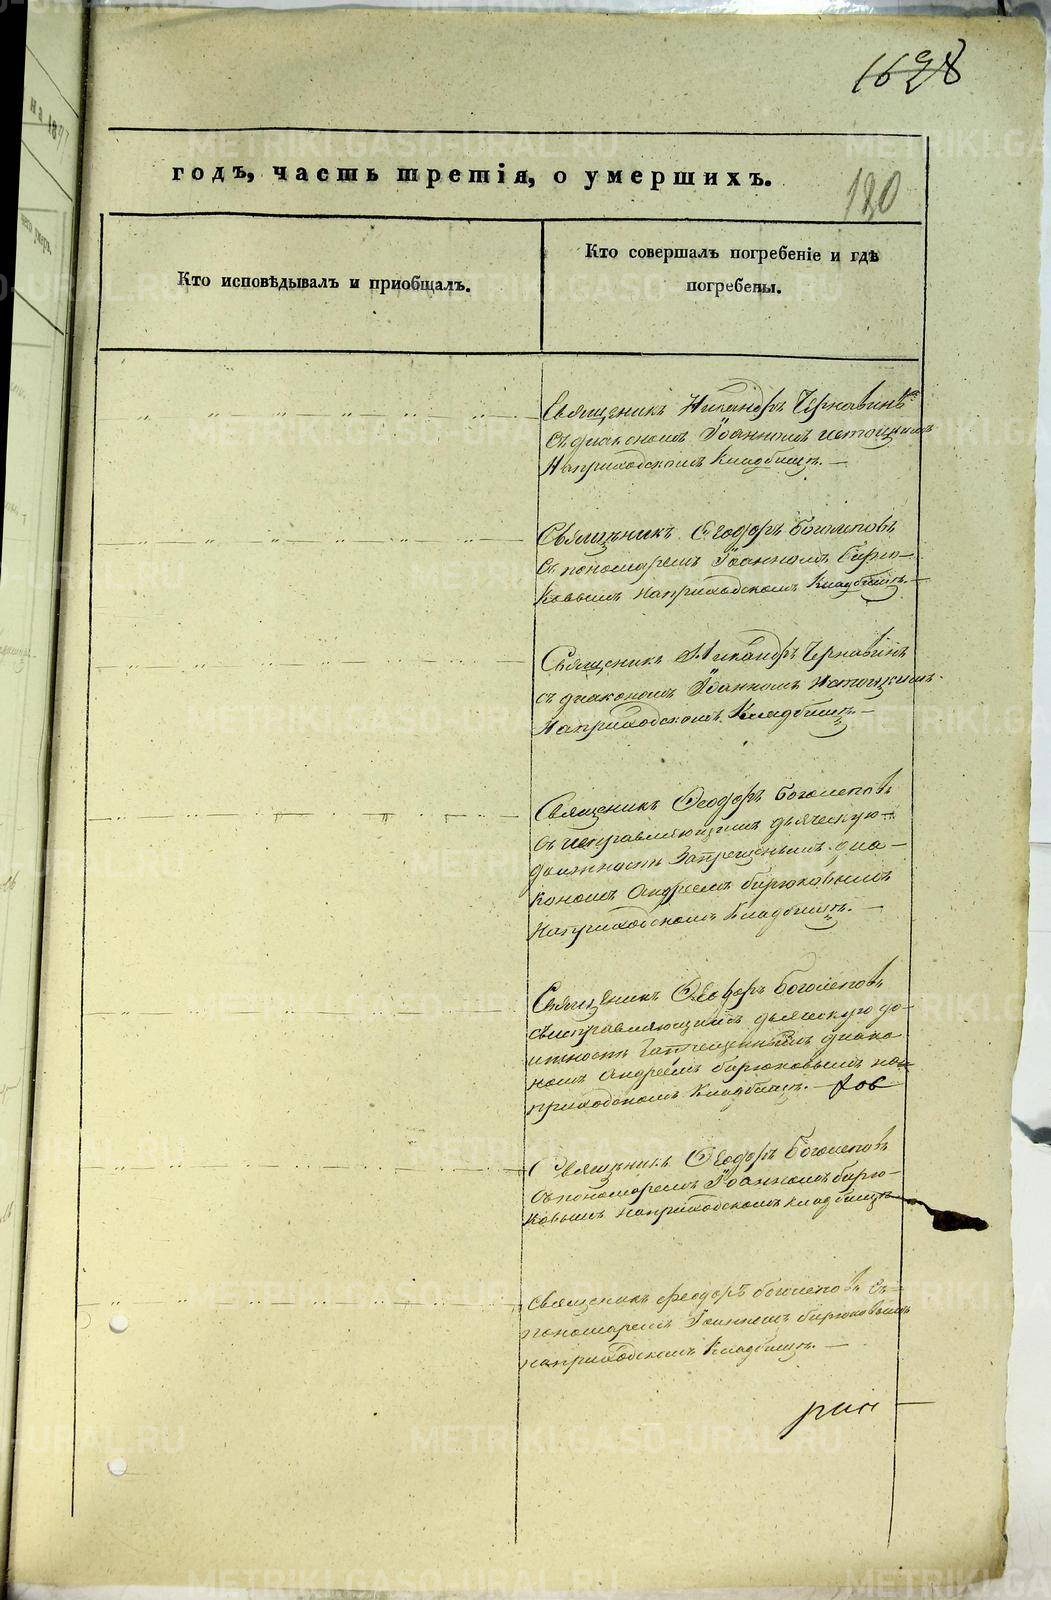 годъ, часть третія, о умершихъ.
120
Кто исповѣдывалъ и приобщалъ.
Кто совершалъ погребеніе и гдѣ
погребены.
Священикъ Никандръ Чернавинъ
съ диакономъ Іоанномъ Истоцкимъ
На приходскомъ Кладбищѣ. —
Священникъ Ѳеодоръ Боголеповъ
съ пономаремъ Іоанномъ Бирю-
ковымъ на приходскомъ Кладбищѣ. —
Священикъ Никандръ Чернавинъ
съ диакономъ Іоанномъ Истоцкимъ
На приходскомъ Кладбищѣ. —
Священикъ Ѳеодоръ Боголеповъ
съ исправляющимъ дьяческую
должность Запрещеннымъ диа-
кономъ Андреемъ Бирюковымъ
На приходскомъ Кладбищѣ. —
Священикъ Ѳеодоръ Боголеповъ
съ исправляющимъ дьяческую до-
лжность Запрещеннымъ диако
номъ Андреемъ Бирюковымъ на
приходскомъ Кладбищѣ. —
Священикъ Ѳеодоръ Боголеповъ
съ пономаремъ Іоанномъ Бирю-
ковымъ на приходскомъ кладбищѣ
Священикъ Феодоръ Боголеповъ съ
пономаремъ Іоанномъ Бирюковымъ
на приходскомъ Кладбищѣ. —
METRIKI.GASO-URAL.RU